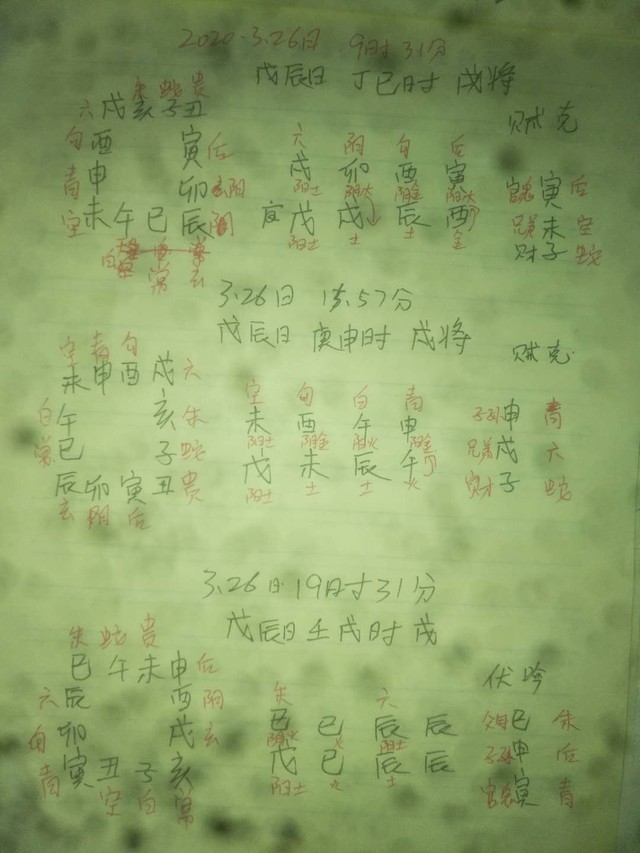 2020.3.26日 9时31分
戊辰日 丁巳时 戌将
朱 蛇 贵
六 戌 亥 子 丑 贼克
勾 酉 寅 后 六 阴 勾 后
戌 卯 酉 寅
青 申 卯 阴土 阴金 官鬼 寅 后
空 未 午 巳 辰 戊 戌 辰 酉 兄弟 未 空
阳土 土 土 金 财 子 蛇
白 常 玄
3.26日 15.57分
戊辰日 庚申时 戌将 贼克
空 青 勾
未 申 酉 戌 六 空 勾 白 青
白 午 亥 朱 未 酉 午 申 子孙 申 青
阴土 阴金 阳火 阳金
常 巳 子 蛇 戊 未 辰 午 兄弟 戌 六
辰 卯 寅 丑 贵 阳土 土 土 火 财 子 蛇
玄 阴 后
3.26日 19时31分
戊辰日 壬戌时 戌
朱 蛇 贵
巳 午 未 申 后 伏吟
六 辰 酉 阴 朱 六
巳 巳 辰 辰 父母 巳 朱
勾 卯 戌 玄 阴火 火 阳土 子孙 申 后
青 寅 丑 子 亥 戊 巳 辰 辰 官鬼 寅 青
空 白 常 阳土 火 土